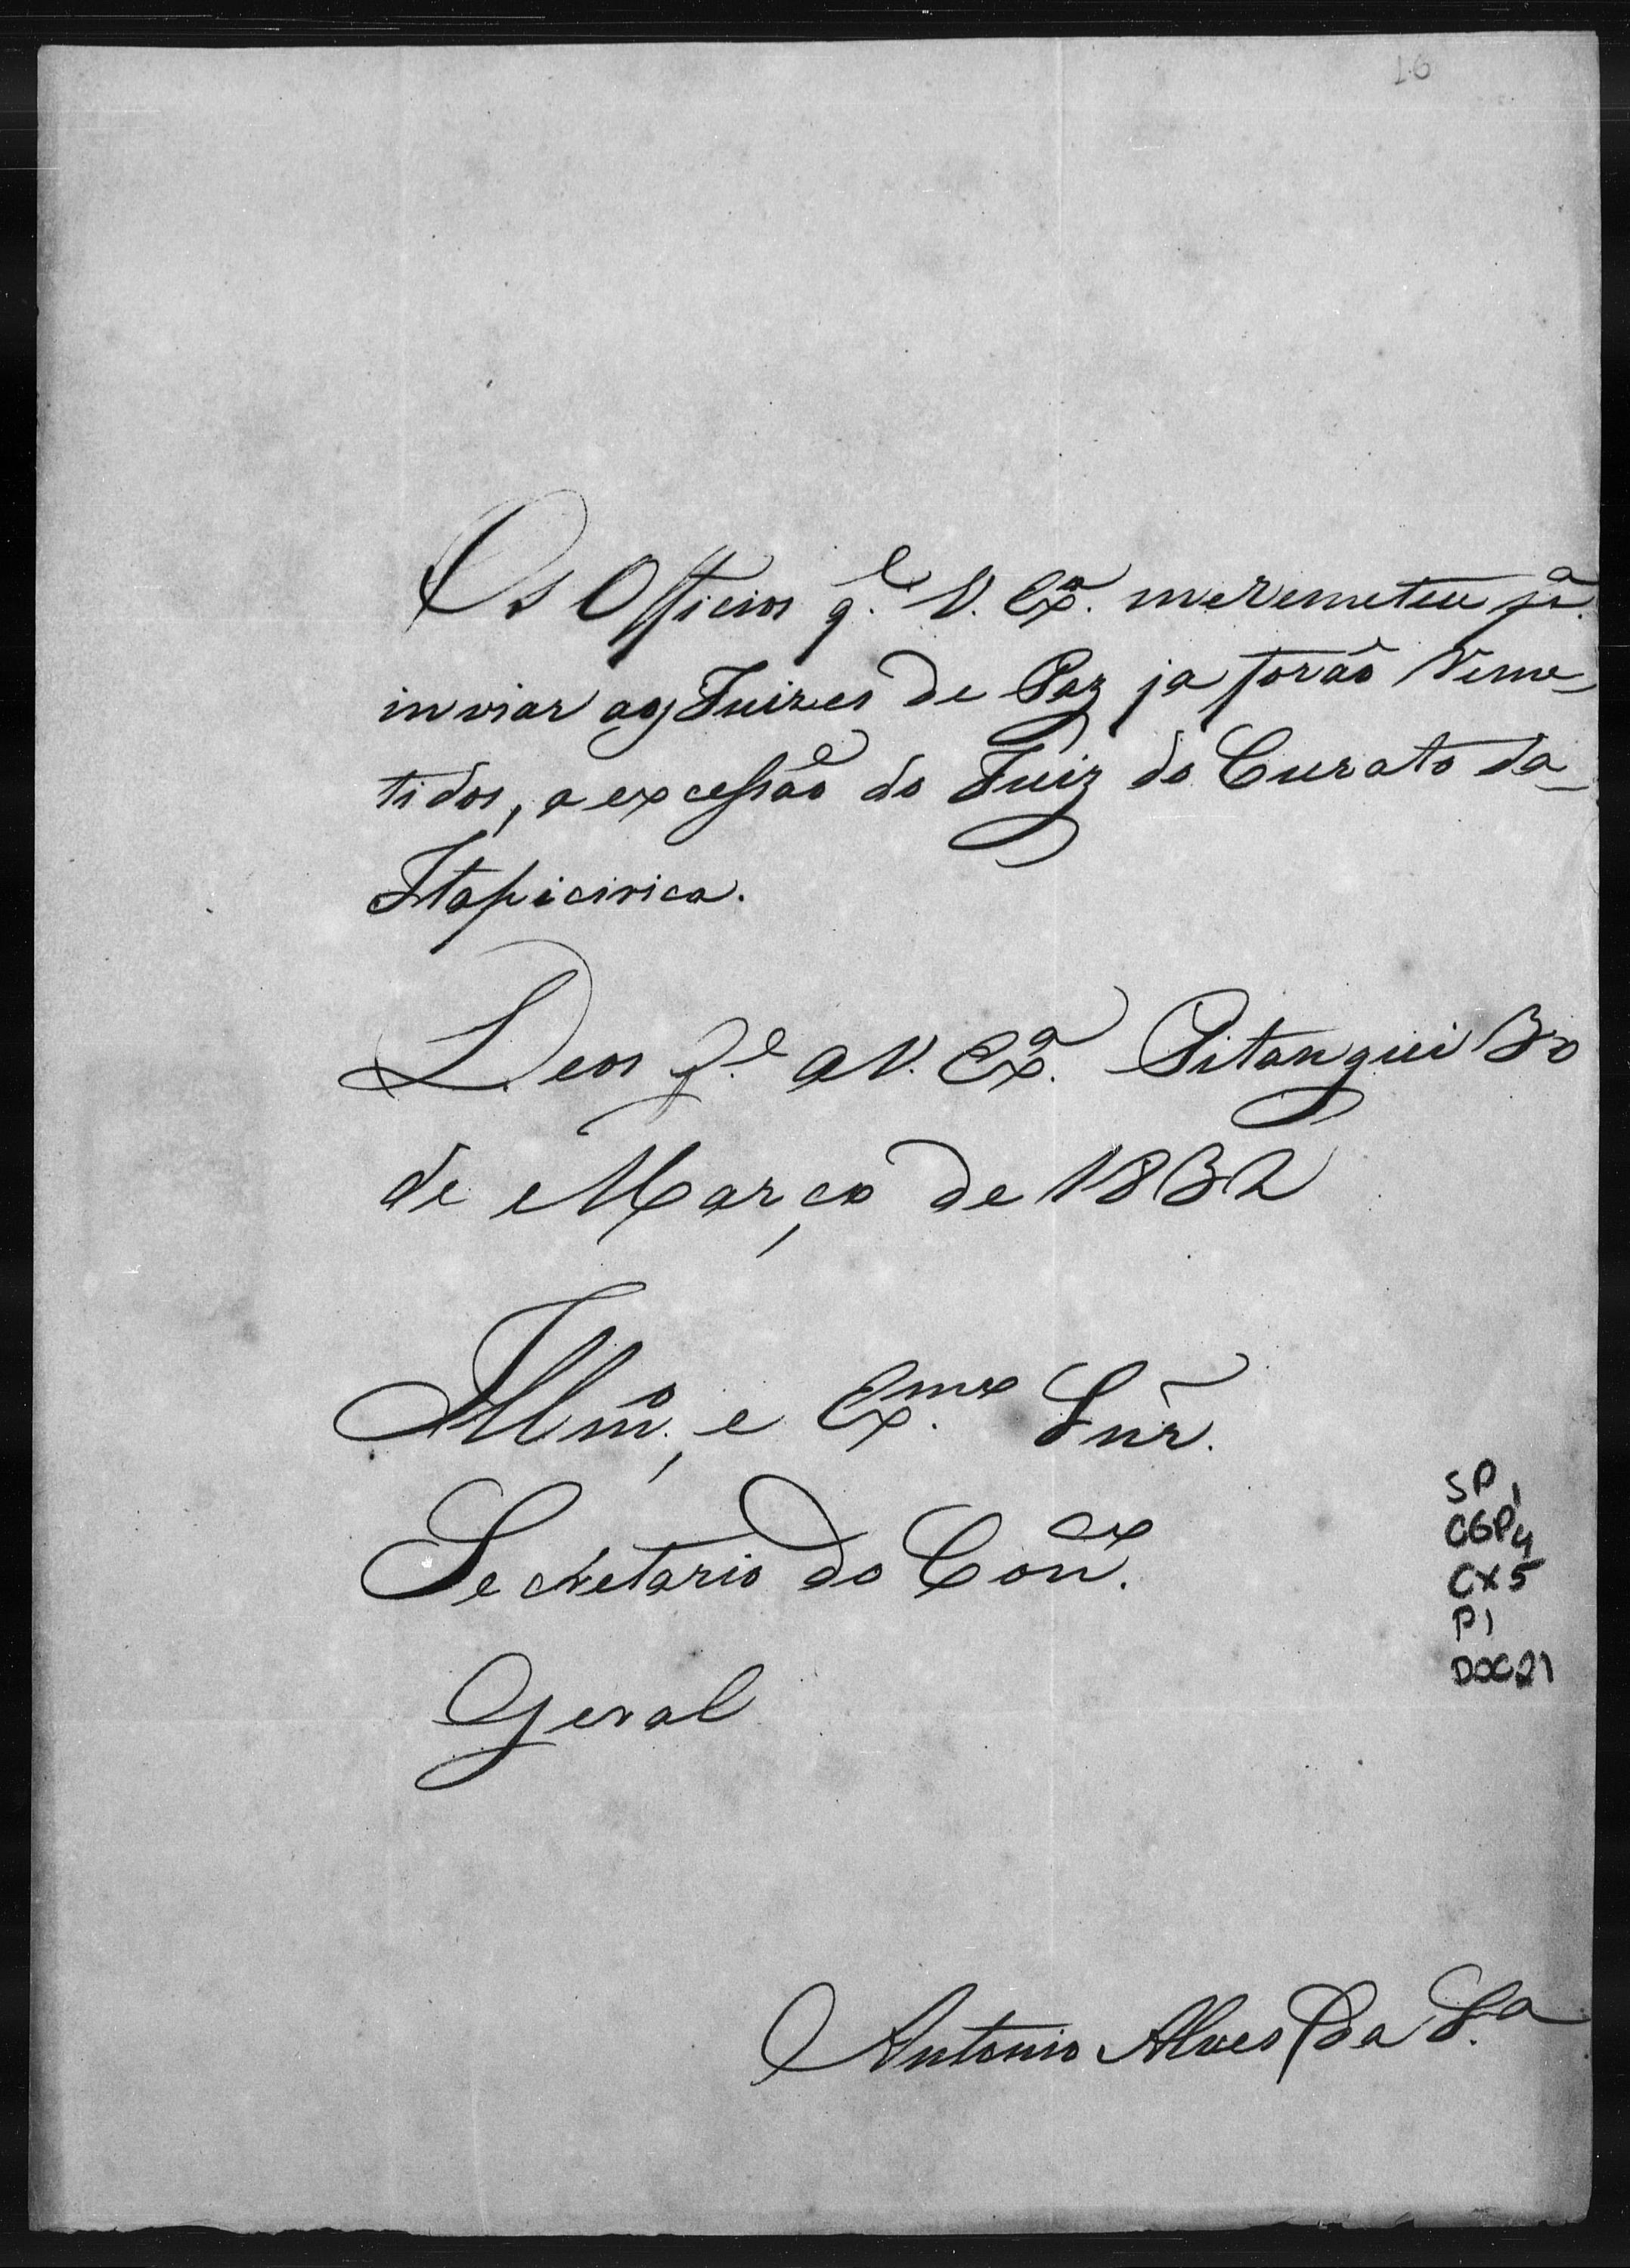 16
Os Officios q.e V. Ex.a me remeteu p.a
inviar aos Juizes de Paz ja forão Reme-
tidos, a excessão do Juiz do Curato da
Itapicirica.
Deos g.e a V. Ex.a Pitangui 30
de Março de 1832
Illm.o, e Ex.mo Snr.
Secretario do Con.co
Geral
Antonio Alves da S.a
SP 1
CGP4
CX5
P1
DOC21